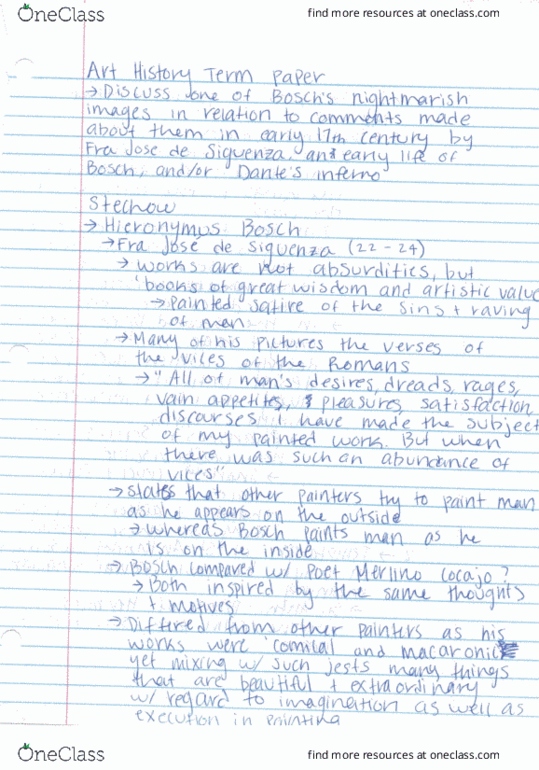 OneClass find more resources at oneclass.com
Art History Term paper
→ Discuss one of Bosch's nightmarish
images in relation to comments made
about them in early 17th century by
Fra Jose de Siguenza, and early life of
Bosch, and/or Dante's inferno
Stechow
→ Hieronymus Bosch
→ Fra José de Siguenza (22-24)
→ works are not absurdities, but
'books of great wisdom and artistic value
→ painted satire of the sins + raving
of men
→ Many of his pictures the verses of
the vices of the Romans
→ "All of man's desires, dreads, rages,
vain appetites, & pleasures, satisfaction
discourses I have made the subject
of my painted work. But when
there was such an abundance of
vices"
→ states that other painters try to paint man
as he appears on the outside
→ whereas Bosch paints man as he
is on the inside
→ Bosch compared w/ Poet Merlino Cocajo?
→ Both inspired by the same thoughts
+ motives
→ Differed from other painters as his
works were 'comical and macaronic
yet mixing w/ such jests many things
that are beautiful + extraordinary
w/ regard to imagination as well as
execution in painting
OneClass find more resources at oneclass.com